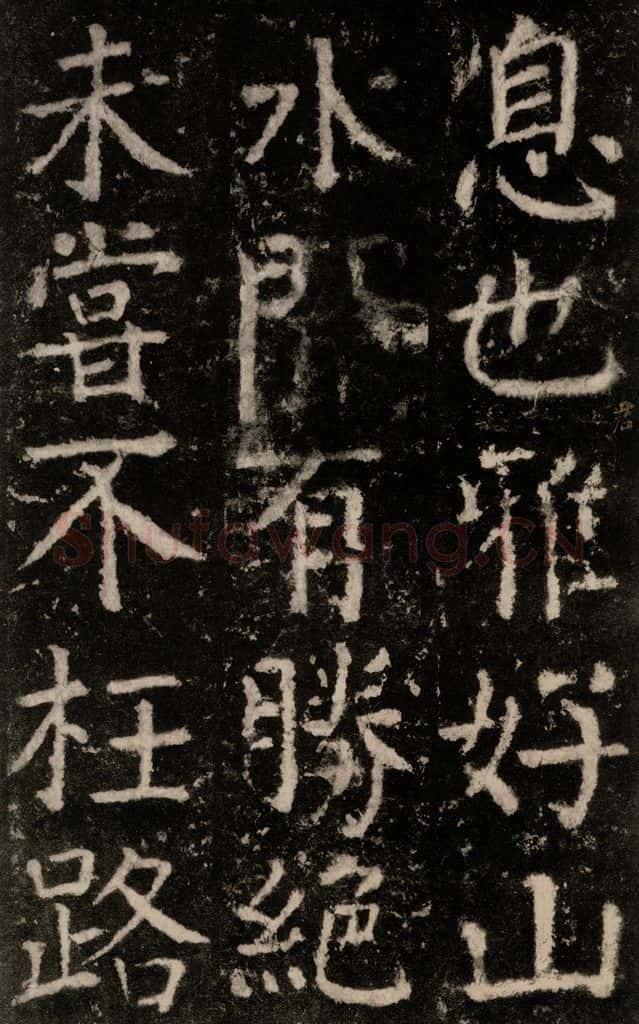 息也雅好山
水有勝絕
未甞不枉路
Shufawang.CN